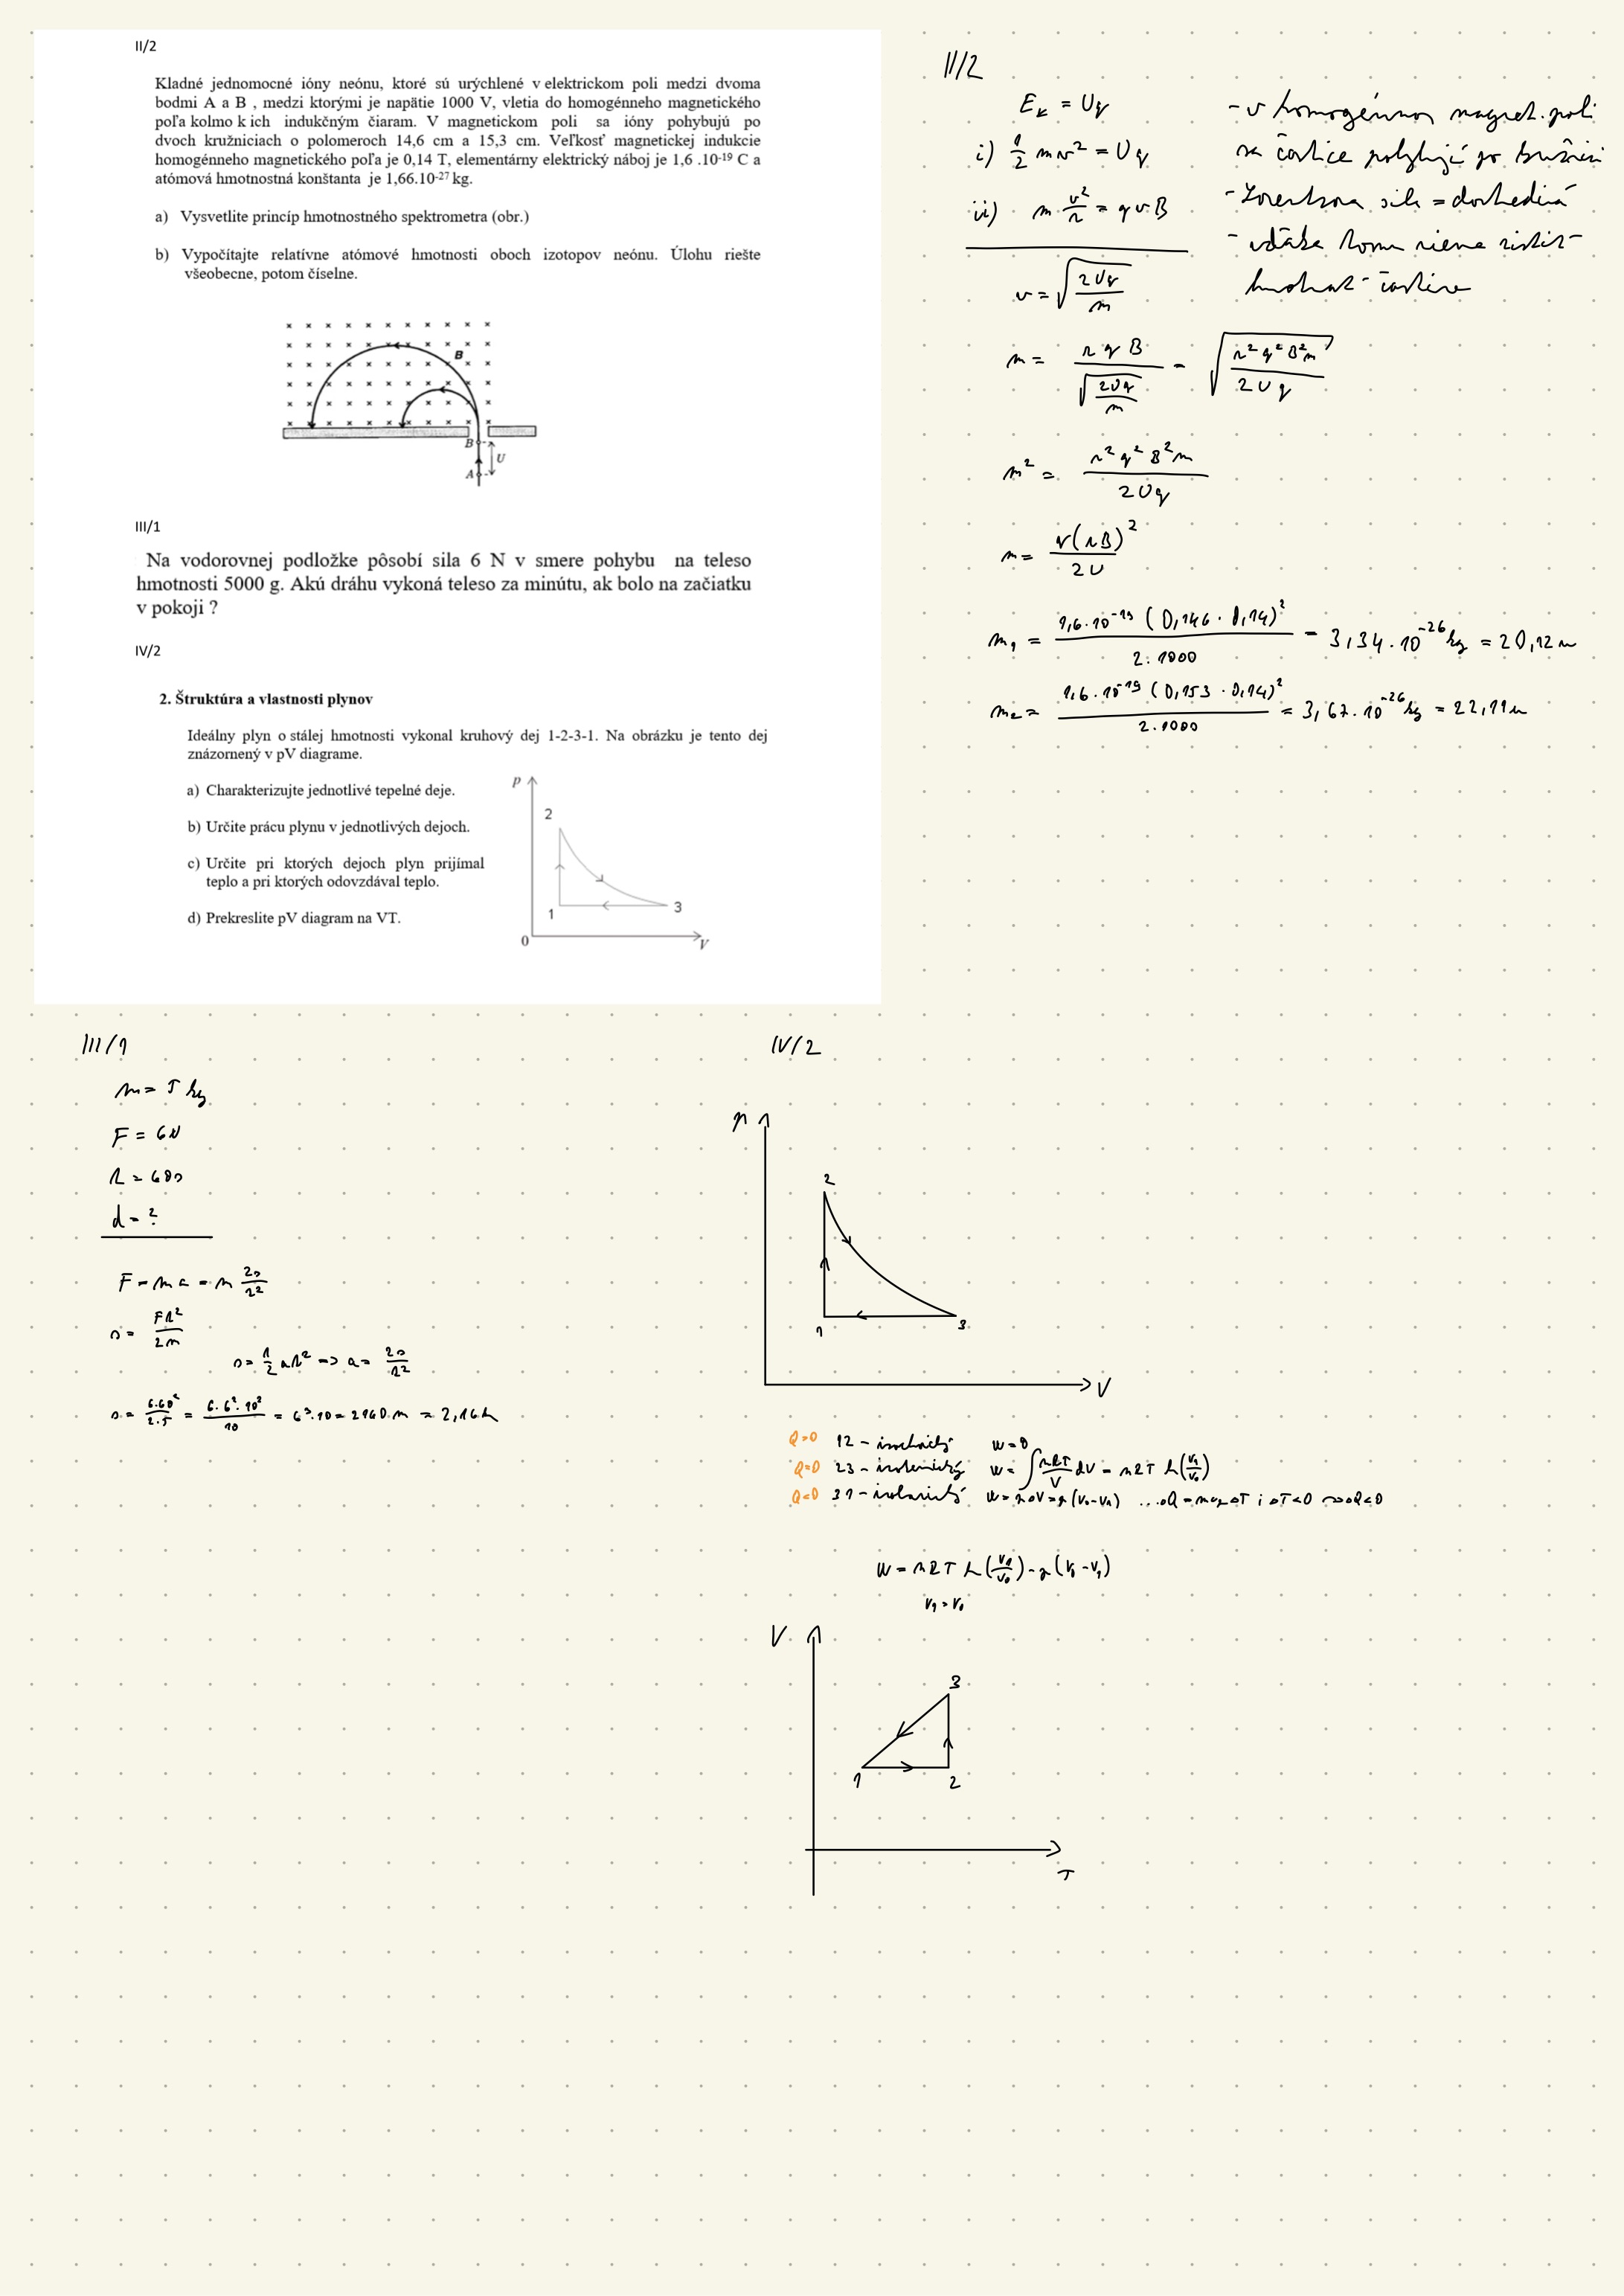 II/2
Kladné jednomocné ióny neónu, ktoré sú urýchlené v elektrickom poli medzi dvoma
bodmi A a B , medzi ktorými je napätie 1000 V, vletia do homogénneho magnetického
poľa kolmo k ich indukčným čiaram. V magnetickom poli sa ióny pohybujú po
dvoch kružniciach o polomeroch 14,6 cm a 15,3 cm. Veľkosť magnetickej indukcie
homogénneho magnetického poľa je 0,14 T, elementárny elektrický náboj je 1,6 .10⁻¹⁹ C a
atómová hmotnostná konštanta je 1,66.10⁻²⁷ kg.
a) Vysvetlite princíp hmotnostného spektrometra (obr.)
b) Vypočítajte relatívne atómové hmotnosti oboch izotopov neónu. Úlohu riešte
všeobecne, potom číselne.
B
B
U
A
III/1
Na vodorovnej podložke pôsobí sila 6 N v smere pohybu na teleso
hmotnosti 5000 g. Akú dráhu vykoná teleso za minútu, ak bolo na začiatku
v pokoji ?
IV/2
2. Štruktúra a vlastnosti plynov
Ideálny plyn o stálej hmotnosti vykonal kruhový dej 1-2-3-1. Na obrázku je tento dej
znázornený v pV diagrame.
a) Charakterizujte jednotlivé tepelné deje.
b) Určite prácu plynu v jednotlivých dejoch.
c) Určite pri ktorých dejoch plyn prijímal
teplo a pri ktorých odovzdával teplo.
d) Prekreslite pV diagram na VT.
p
2
1
3
0
V
II/2
E_k = Uq
i) 1/2 mv² = Uq
ii) m v²/r = qvB
v = √(2Uq/m)
m = rqB/√(2Uq/m) = √(r²q²B²m/2Uq)
m² = r²q²B²m/2Uq
m = q(rB)²/2U
m₁ = 1,6.10⁻¹⁹ (0,146 . 0,14)²/2.1000 = 3,34.10⁻²⁶ kg = 20,12 u
m₂ = 1,6.10⁻¹⁹ (0,153 . 0,14)²/2.1000 = 3,67.10⁻²⁶ kg = 22,11 u
- v homogénnom magnet. poli
sa častice pohybujú po
- Lorentzova sila = dostredivá
- vďaka tomu vieme zistiť
hmotnosť častice
III/1
m = 5 kg
F = 6N
t = 60s
d = ?
F = ma = m 2s/t²
s = Ft²/2m
s = 1/2 at² => a = 2s/t²
s = 6.60²/2.5 = 6.6².10²/10 = 6³.10 = 2160 m = 2,16 km
IV/2
p
2
1
3
V
Q>0 12 - izochorický W = 0
23 - izotermický W = ∫ nRT/V dV = nRT ln(V₁/V₀)
Q<0 31 - izobarický W = pΔV = p(V₀-V₁) ...ΔQ = mcₚΔT ; ΔT<0 => ΔQ<0
W = nRT ln(V₁/V₀) - p(V₀-V₁)
V₁ > V₀
V
3
1
2
T